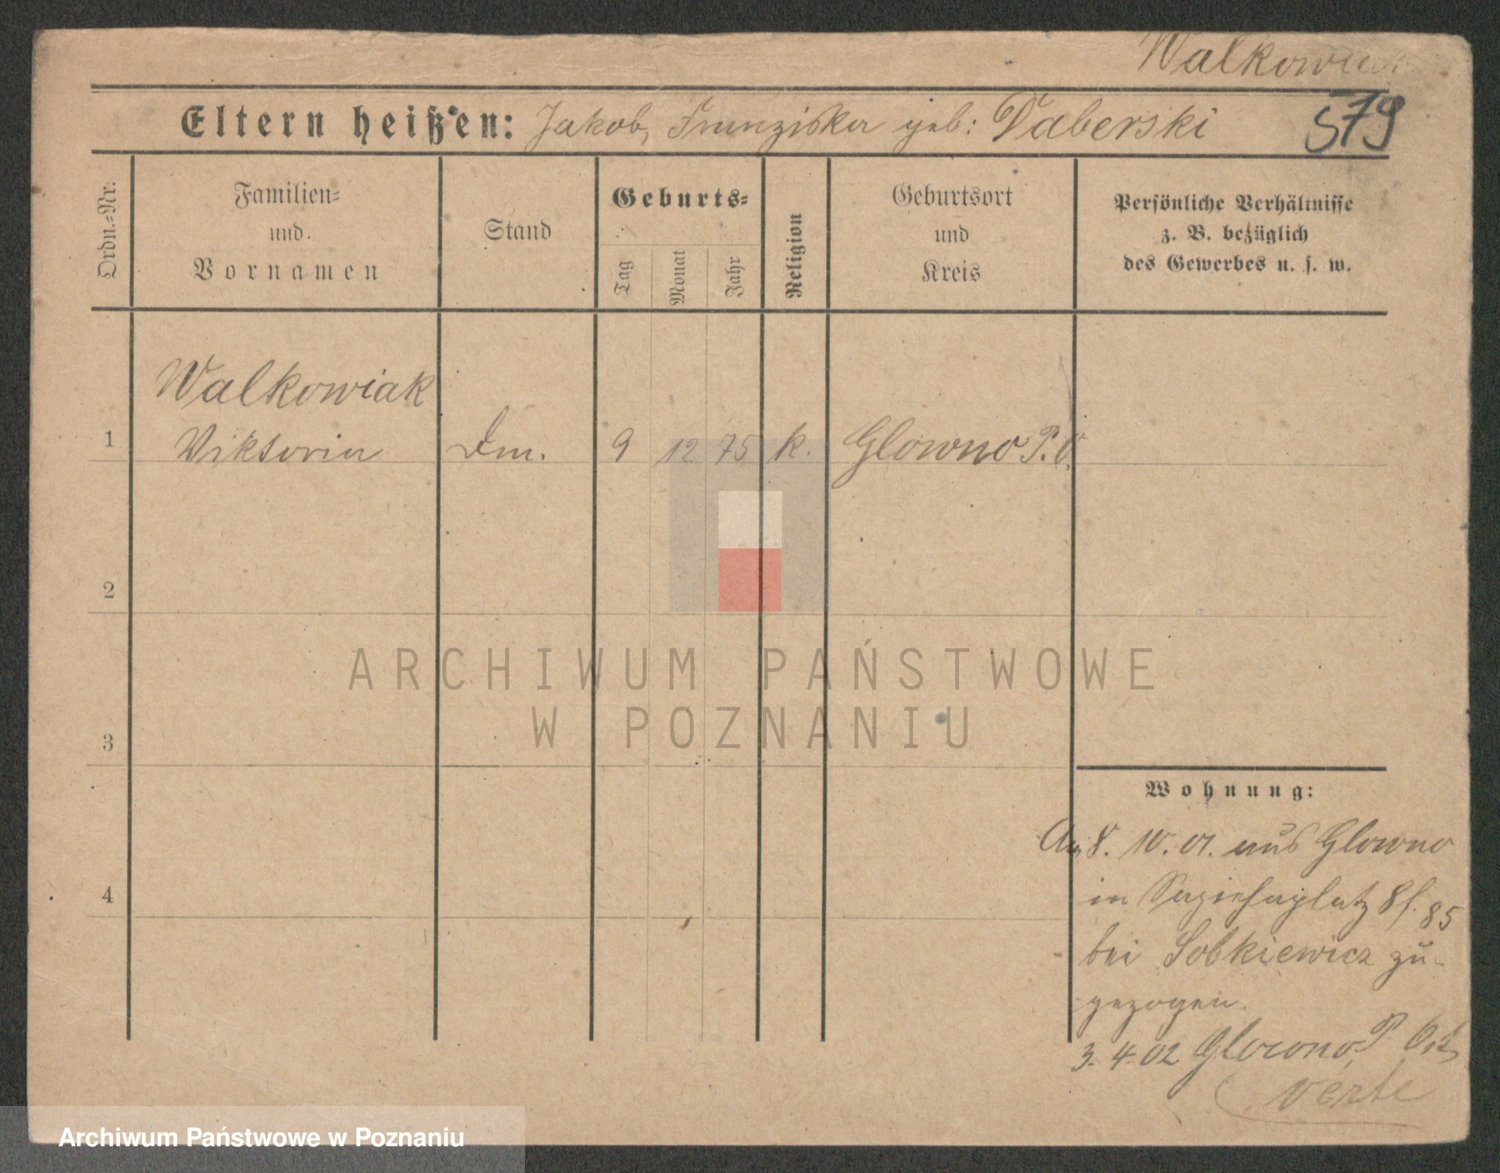 Walkowiak
Eltern heißen: Jakob, Franziska geb: Taberski
579
Ordn.-Nr.
Familien-
und
Vornamen
Stand
Geburts-
Tag
Monat
Jahr
Religion
Geburtsort
und
Kreis
Persönliche Verhältnisse
z. B. bezüglich
des Gewerbes u. s. w.
Walkowiak
1 Viktoria Dm. 9 12 75 k. Glowno P. O.
2
3
4
ARCHIWUM PAŃSTWOWE
W POZNANIU
Wohnung:
Am 8. 10. 01. aus Glowno
in Sapiehaplatz 8 f. 85
bei Sobkiewicz zu-
gezogen.
3. 4. 02 Glowno, P. Ost
verte
Archiwum Państwowe w Poznaniu